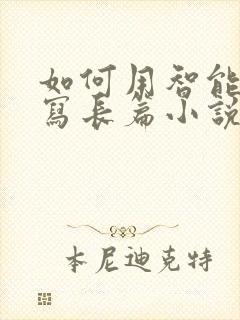 如何用智能
寫長篇小說
本尼迪克特